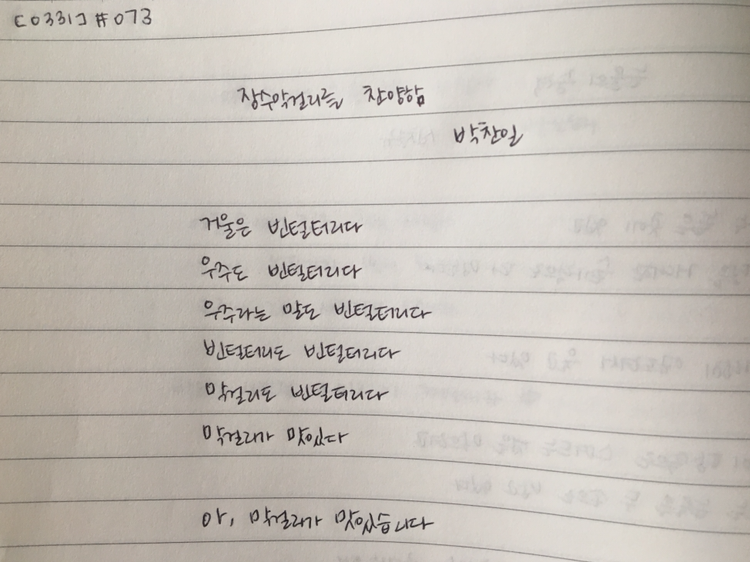 [0331] #073
장수막걸리를 찬양함
박찬일
거울은 빈털터리다
우주도 빈털터리다
우주라는 말도 빈털터리다
빈털터리도 빈털터리다
막걸리도 빈털터리다
막걸리가 맛있다
아, 막걸리가 맛있습니다